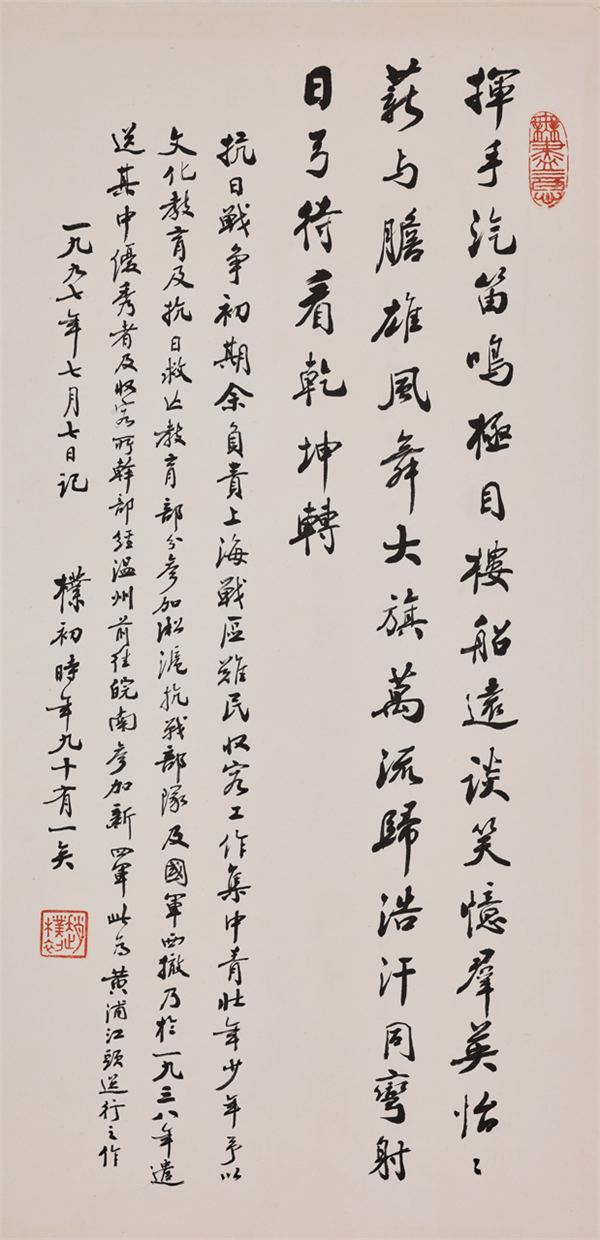 揮手汽笛鳴極目樓船遠談笑憶羣英怡〻
薪与膽雄風舞大旗萬流歸浩汗同彎射
日弓待看乾坤轉
抗日戰争初期余負責上海戰區難民收容工作集中青壯年少年予以
文化教育及抗日救亡教育部分参加淞滬抗戰部隊及國軍西撤乃於一九三八年遣
送其中優秀者及收容所幹部經温州前往皖南参加新四軍此为黄浦江頭送行之作
一九九七年七月七日記
樸初時年九十有一矣
無盡意
趙樸初